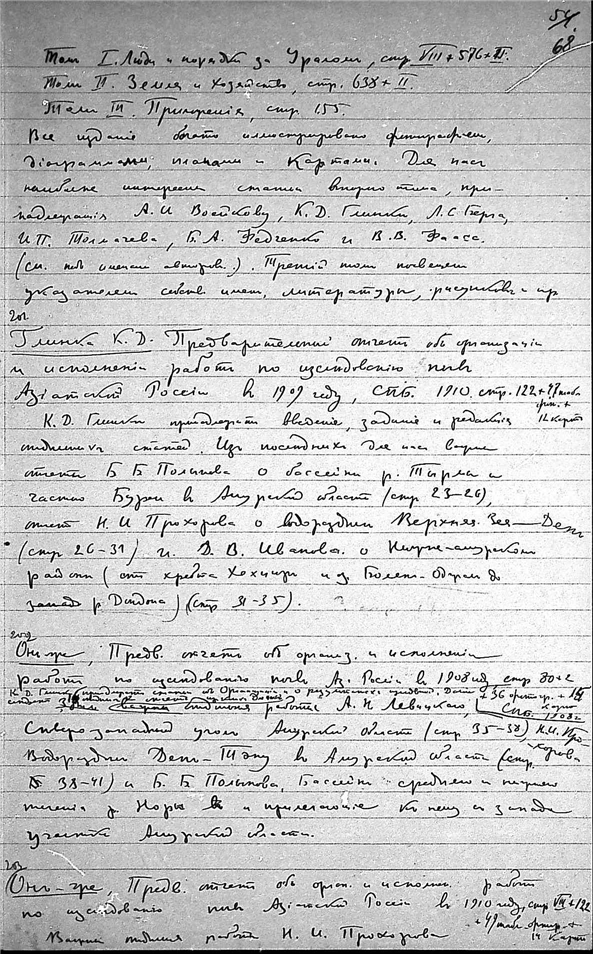 54.
68
Томъ I. Люди и порядки за Ураломъ, стр. VIII + 576 + II.
Томъ II. Земля и хозяйство, стр. 638 + II.
Томъ III. Приложенія, стр. 155.
Все изданіе богато иллюстрировано фотографіями,
діаграммами, планами и картами. Для насъ
наиболѣе интересны статьи второго тома, при-
надлежащія А. И. Воейкову, К. Д. Глинкѣ, Л. С. Бергу,
И. П. Толмачеву, Б. А. Федченко и В. В. Фааса.
(см. подъ именами авторовъ.). Третій томъ посвященъ
указателемъ собств. именъ, литературы, рисунковъ и пр
201.
Глинка К. Д. Предварительный отчетъ объ организаціи
и исполненіи работъ по изслѣдованію почвъ
Азіатской Россіи въ 1909 году, СПБ. 1910. стр. 122 +
фот. +
12 картъ
К. Д. Глинкѣ принадлежатъ введеніе, заданіе и редакція
отдѣльныхъ статей. Изъ послѣднихъ для насъ важны
отчеты Б. Б. Полынова о бассейнѣ р. Тырмы и
частью Буреи въ Амурской области (стр 23–26),
отчетъ Н. И. Прохорова о водораздѣлѣ Верхняя Зея – Депъ
(стр 26–31) и Д. В. Иванова о Нижне-амурскомъ
районѣ (отъ хребта и оз. до
запада р ) (стр 31–35).
202
Онъ же, Предв. отчетъ объ организ. и исполненіи
работъ по изслѣдованію почвъ Аз. Россіи въ 1908 году, стр 80 + 2
К. Д. Глинкѣ принадлежитъ статья объ организаціи и результатахъ + 36 фототип. +
картъ
важны отдѣльныя работы А. И. Левицкаго, СПБ. 1908 г
Сѣверозападный уголъ Амурской области (стр 35–38) Н. И. Про-
хорова
Водораздѣлъ Депъ – въ Амурской области (стр.
38–41) и Б. Б. Полынова, Бассейнъ средняго и нижняго
теченія р. Норы и прилегающіе къ нему съ запада
участки Амурской области.
203
Онъ-же, Предв. отчетъ объ орган. и исполнен. работъ
по изслѣдованію почвъ Азіатской Россіи въ 1910 году, стр VII + 122
+ 49 табл. фотогр. +
14 картъ
Важны отдѣльныя работы Н. И. Прохорова